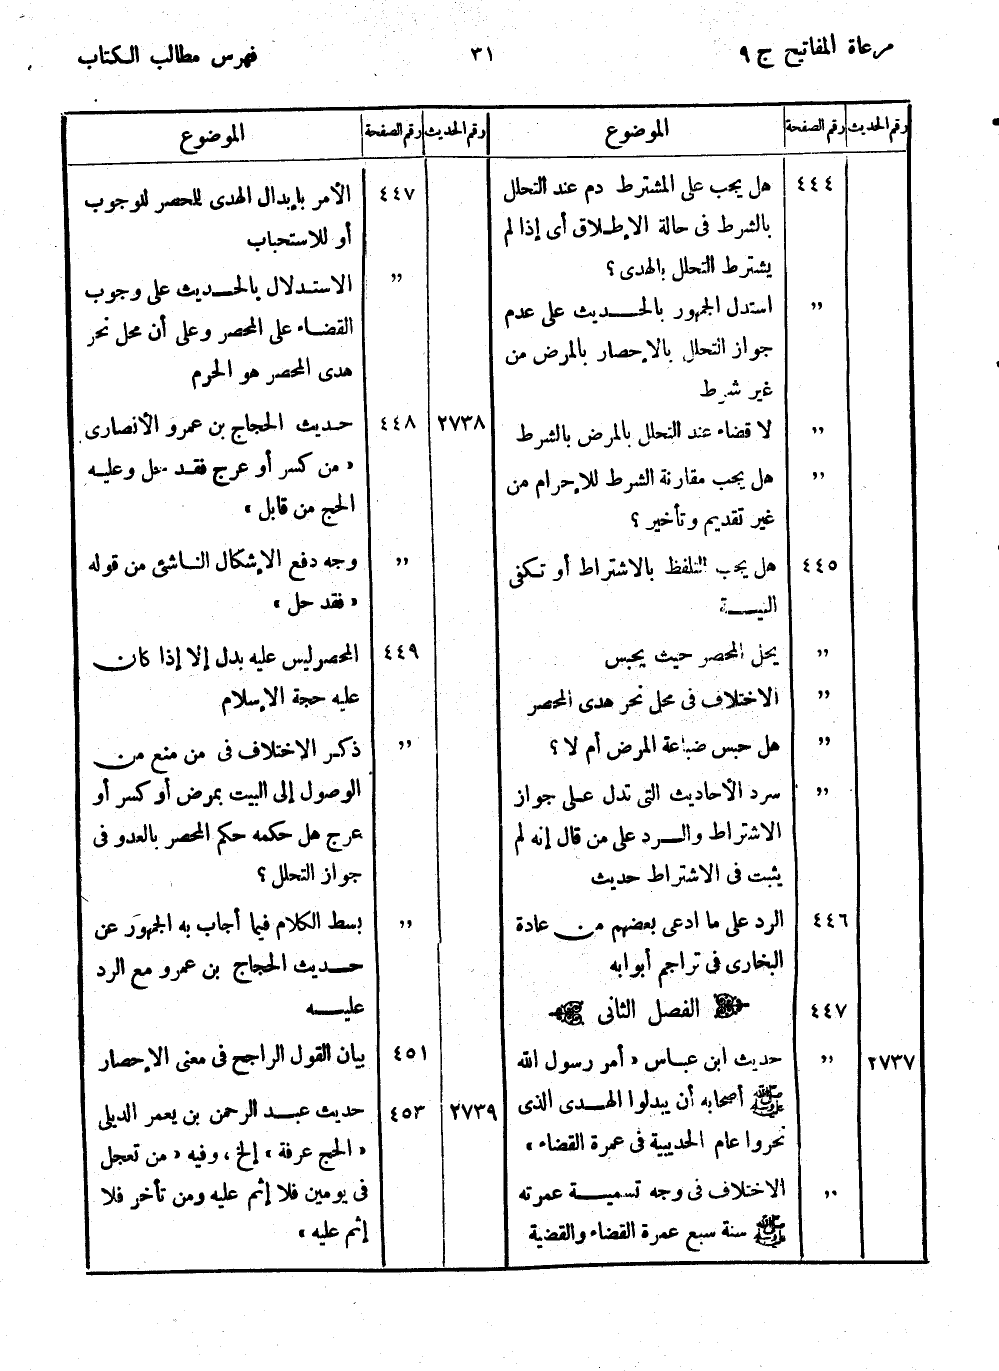 مرعاة المفاتيح ج ٩
٣١
فهرس مطالب الكتاب
رقم الحديث رقم الصفحة الموضوع
٤٤٤ هل يجب على المشترط دم عند التحلل
بالشرط فى حالة الإطلاق أى إذا لم
يشترط التحلل بالهدى ؟
,, استدل الجمهور بالحديث على عدم
جواز التحلل بالإحصار بالمرض من
غير شرط
,, لا قضاء عند التحلل بالمرض بالشرط
,, هل يجب مقارنة الشرط للإحرام من
غير تقديم وتأخير ؟
٤٤٥ هل يجب التلفظ بالاشتراط أو تكفى
النية
,, يحل المحصر حيث يحبس
,, الاختلاف فى محل نحر هدى المحصر
,, هل حبس ضباعة المرض أم لا ؟
,, سرد الأحاديث التى تدل على جواز
الاشتراط والرد على من قال إنه لم
يثبت فى الاشتراط حديث
٤٤٦ الرد على ما ادعى بعضهم من عادة
البخارى فى تراجم أبوابه
٤٤٧ الفصل الثانى
٢٧٣٧ ,, حديث ابن عباس « أمر رسول الله
ﷺ أصحابه أن يبدلوا الهدى الذى
نحروا عام الحديبية فى عمرة القضاء »
,, الاختلاف فى وجه تسمية عمرته
ﷺ سنة سبع عمرة القضاء والقضية
رقم الحديث رقم الصفحة الموضوع
٤٤٧ الأمر بإبدال الهدى للحصر للوجوب
أو للاستحباب
,, الاستدلال بالحديث على وجوب
القضاء على المحصر وعلى أن محل نحر
هدى المحصر هو الحرم
٢٧٣٨ ٤٤٨ حديث الحجاج بن عمرو الأنصارى
« من كسر أو عرج فقد حل وعليه
الحج من قابل »
,, وجه دفع الإشكال الناشئ من قوله
« فقد حل »
٤٤٩ المحصر ليس عليه بدل إلا إذا كان
عليه حجة الإسلام
,, ذكر الاختلاف فى من منع من
الوصول إلى البيت بمرض أو كسر أو
عرج هل حكمه حكم المحصر بالعدو فى
جواز التحلل ؟
,, بسط الكلام فيما أجاب به الجمهور عن
حديث الحجاج بن عمرو مع الرد
عليه
٤٥١ بيان القول الراجح فى معنى الإحصار
٢٧٣٩ ٤٥٣ حديث عبد الرحمن بن يعمر الديلى
« الحج عرفة » إلخ ، وفيه « من تعجل
فى يومين فلا إثم عليه ومن تأخر فلا
إثم عليه »